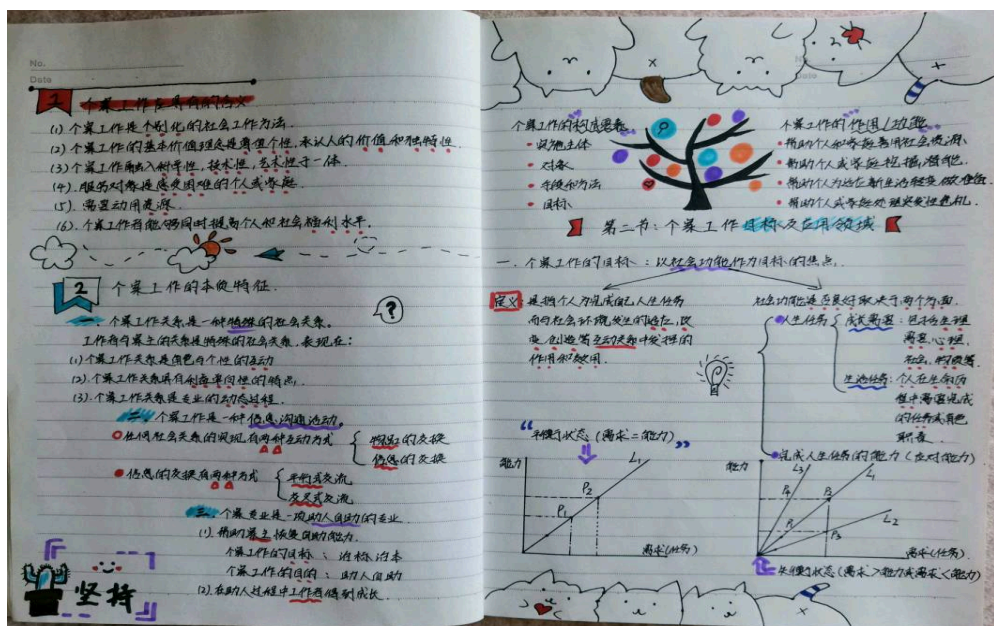 No.
Date
1 个案工作应具有的含义
(1) 个案工作是个别化的社会工作方法.
(2) 个案工作的基本价值理念是尊重个性.承认人的价值和独特性.
(3) 个案工作融入科学性,技术性,艺术性于一体.
(4).服务对象是感受困难的个人或家庭.
(5).需要动用资源.
(6).个案工作者能够同时提高个人和社会福利水平.
2 个案工作的本质特征.
一.个案工作关系是一种特殊的社会关系.
工作者与案主的关系是特殊的社会关系,表现在:
(1)个案工作关系是角色与个性的互动
(2).个案工作关系具有利益单向性的特点.
(3).个案工作关系是专业的动态过程.
二.个案工作是一种信息沟通活动.
任何社会关系的实现有两种互动方式
物品的交换
信息的交换
信息的交换有两种方式
平行式交流
交叉式交流
三.个案专业是一项助人自助的专业
(1).帮助案主恢复自助能力.
个案工作的目标:治标治本
个案工作的目的:助人自助
(2).在助人过程中工作者得到成长.
坚持
个案工作的构成要素
实施主体
对象
手段和方法
目标
个案工作的作用/功能
帮助个人和家庭善用社会资源.
帮助个人或家庭挖掘潜能.
帮助个人为适应新生活转变做准备
帮助个人或家庭处理突发性危机.
第二节:个案工作目标及应用领域
一.个案工作的目标:以社会功能作为目标的焦点.
定义:是指个人为完成自己人生任务
而与社会环境发生的适应,改
变,创造等互动关系中发挥的
作用和效用.
社会功能是否良好取决于两个方面.
人生任务
成长需要:包括生理
需要,心理,
社会,的改善
生活任务:个人在生命历
程中需要完成
的任务或角色
职责.
完成人生任务的能力(应对能力)
“平衡状态(需求=能力)”
能力
L₁
P₂
P₁
需求(任务)
能力
L₃
L₁
P₄
P₂
P₁
L₂
P₃
需求(任务).
失衡状态(需求>能力或需求<能力)